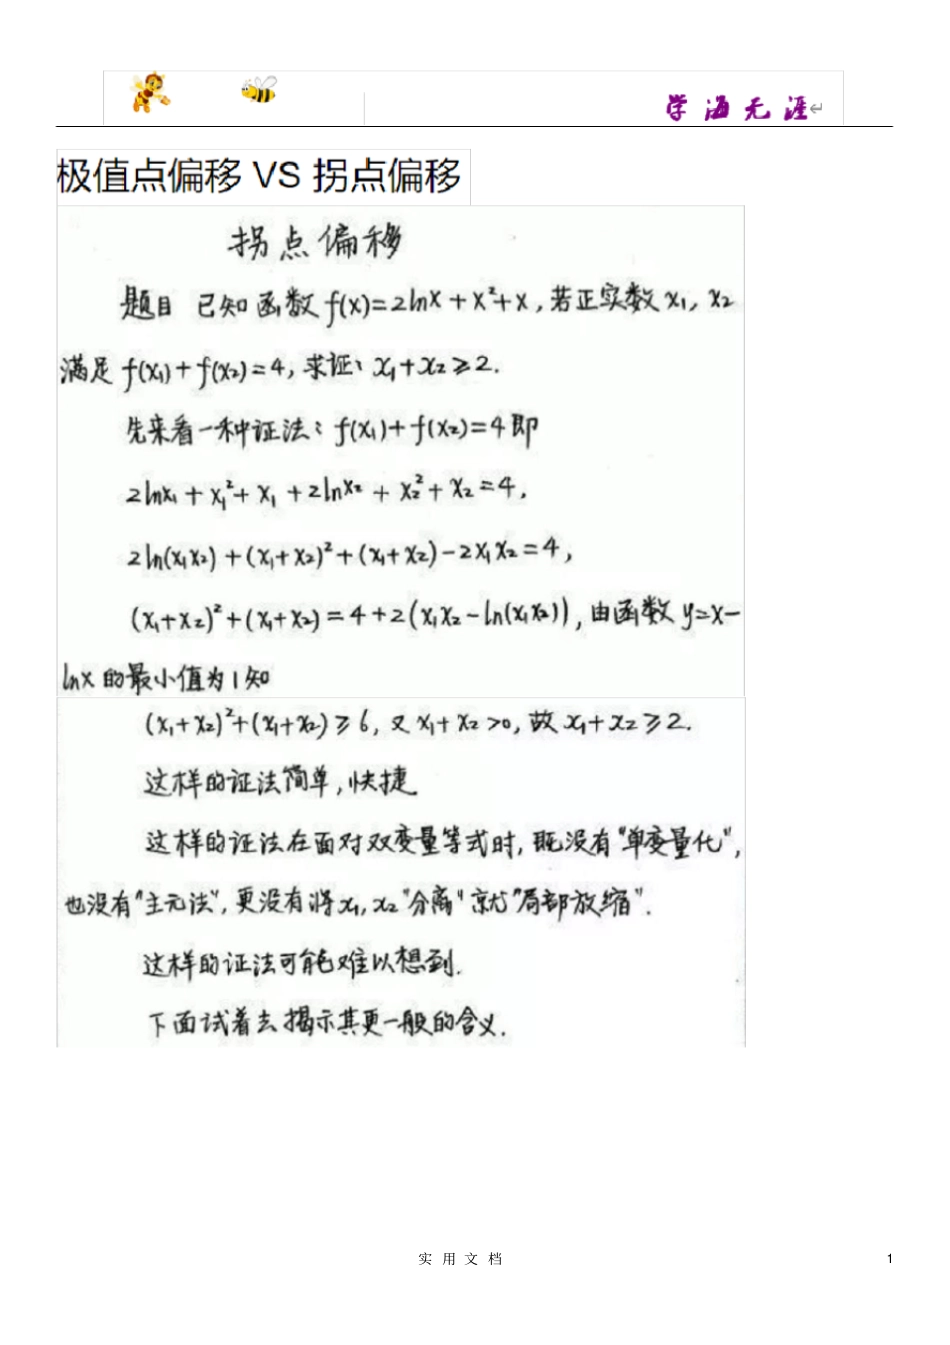 学海无涯
极值点偏移 VS 拐点偏移
拐点偏移
题目 已知函数 f(x)=2lnx+x²+x,若正实数x₁,x₂
满足 f(x₁)+f(x₂)=4,求证:x₁+x₂≥2.
先来看一种证法:f(x₁)+f(x₂)=4即
2lnx₁+x₁²+x₁+2lnx₂+x₂²+x₂=4,
2ln(x₁x₂)+(x₁+x₂)²+(x₁+x₂)-2x₁x₂=4,
(x₁+x₂)²+(x₁+x₂)=4+2(x₁x₂-ln(x₁x₂)),由函数y=x-
lnx的最小值为1知
(x₁+x₂)²+(x₁+x₂)≥6,又x₁+x₂>0,故x₁+x₂≥2.
这样的证法简单,快捷
这样的证法在面对双变量等式时,既没有"单变量化",
也没有"主元法",更没有将x₁,x₂"分离"就"局部放缩".
这样的证法可能难以想到.
下面试着去揭示其更一般的含义.
实用文档 1